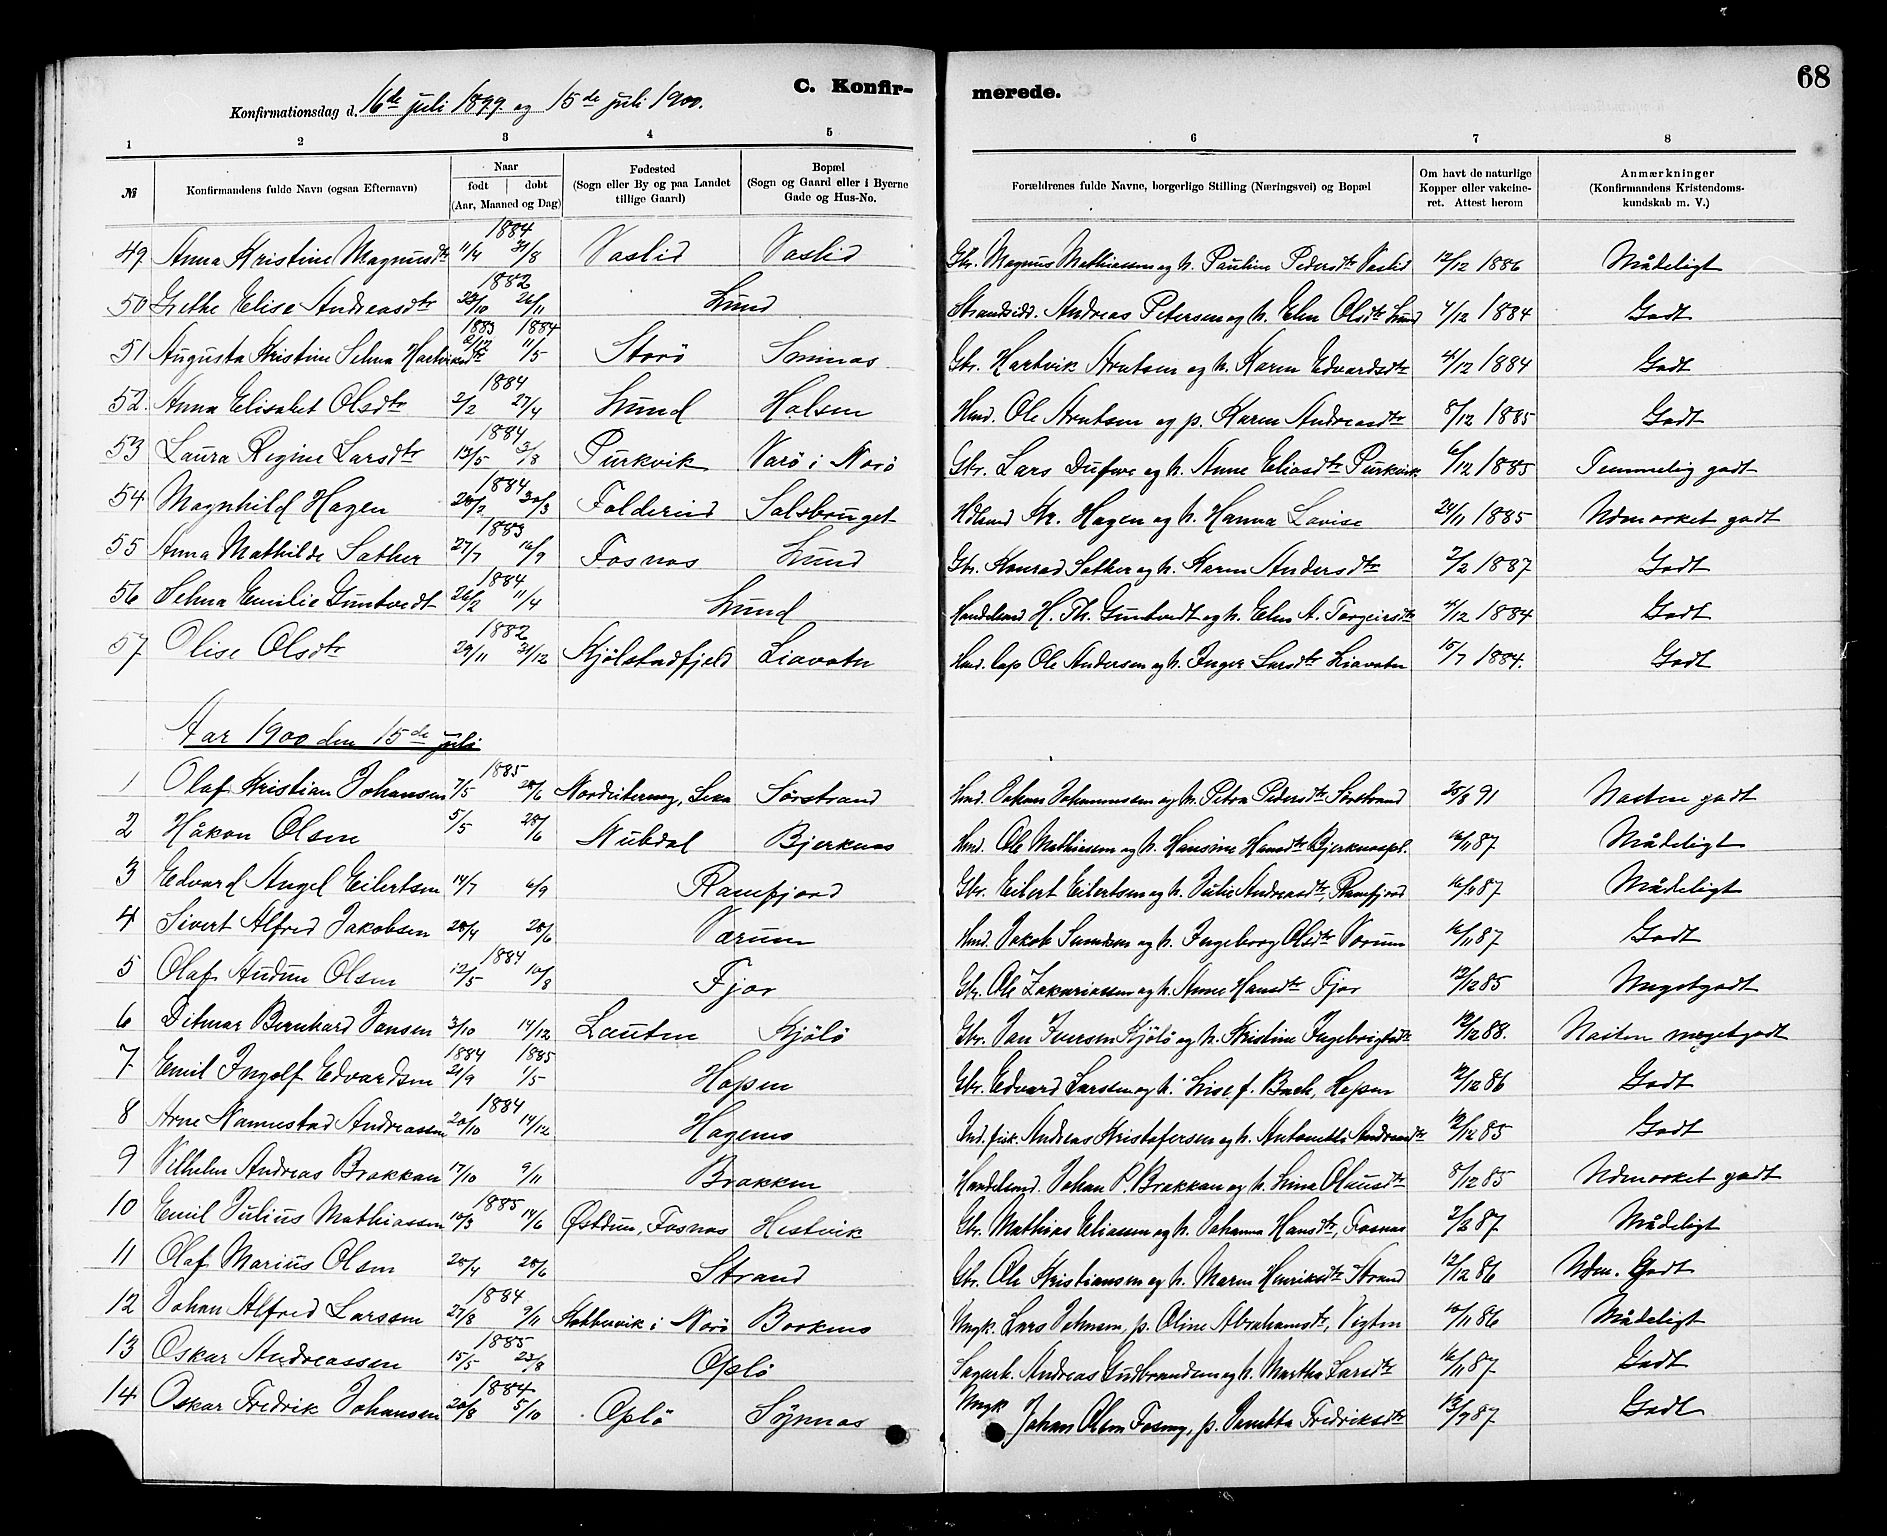 68
C. Konfirmerede.
Konfirmationsdag d. 16de juli 1899. og 15de juli 1900.
1 2 3 4 5 6 7 8
№ Konfirmandens fulde Navn (ogsaa Efternavn) Naar født døbt (Aar, Maaned og Dag) Fødested (Sogn eller By og paa Landet tillige Gaard) Bopæl (Sogn og Gaard eller i Byerne Gade og Hus-No. Forældrenes fulde Navne, borgerlige Stilling (Næringsvei) og Bopæl Om havt de naturlige Kopper eller vakcineret. Attest herom Anmærkninger (Konfirmandens Kristendomskundskab m. V.)
49. Anna Kristine Magnusdtr 1884 11/4 31/8 Vaslid Vaslid Gbr. Magnus Mathiassen og h. Pauline Pedersdtr Vaslid 12/12 1886 Mådeligt
50 Grethe Elise Andreasdtr 1882 23/10 26/11 Lund Strandsidd. Andreas Petersen og h. Elen Olsdtr Lund 4/12 1884 Godt
51 Augusta Kristine Selma Hartviksdtr 1883 2/12 1884 11/5 Storö Smines Gbr. Hartvik Arntsen og h. Karen Edvardsdtr 4/12 1884 Godt
52. Anna Elisabet Olsdtr 1884 2/2 27/4 Lund Halsen Hmd. Ole Arntsen og p. Karen Andreasdtr 8/12 1885 Godt
53 Laura Regine Larsdtr 1884 13/5 3/8 Purkvik Varö i Narö Gbr. Lars Dufwe og h. Anne Eliasdtr Purkvik. 6/12 1885 Temmelig godt
54 Magnhild Hagen 1884 20/2 30/3 Foldereid Salsbruget Kr. Hagen og h. Hanna Lovise 24/11 1885 Udmærket godt
55 Anna Mathilde Sæther 1883 27/7 16/9 Fosnæs Lund Gbr. Konrad Sæther og h. Karen Andersdtr 2/2 1887 Godt
56 Selma Emilie Guntvedt 1884 26/2 11/4 Lund Handelsmd H. Th. Guntvedt og h. Elen A. Torgeirsdtr 4/12 1884 Godt
57 Olise Olsdtr 1882 29/11 31/12 Kjölstadfjeld Liavatn Hmd. lap Ole Andersen og h. Inger Larsdtr Liavatn 15/7 1884. Godt
Aar 1900 den 15de juli
1 Olaf Kristian Johansen 1885 7/5 28/6 Leka Sörstrand Hmd. Johan Johannessen og h. Petra Pedersdtr Sörstrand 20/8 91 Næsten godt
2 Håkon Olsen 5/5 28/6 Nubdal Bjerknes Hmd. Ole Mathiassen og h. Hansine Hansdtr Bjerknespl. 16/11 87 Mådeligt
3 Edvard Angel Eilertsen 14/7 6/9 Ramfjord Gbr. Eilert Eilertsen og h. Julie Andreasdtr, Ramfjord 16/11 87 Mådeligt
4 Sivert Alfred Jakobsen 20/4 28/6 Værum Hmd. Jakob og h. Ingeborg Olsdtr Værum 16/11 87 Godt
5 Olaf Audun Olsen 1884 12/5 10/8 Fjær Gbr. Ole Zakariassen og h. Anne Hansdtr Fjær 12/12 85 Megetgodt
6 Ditmar Bernhard Jansen 3/10 14/12 Lauten Kjölö Gbr. Jan Iversen Kjölö og h. Kristine Ingebrigtsdtr 12/12 88. Næsten megetgodt
7 Emil Ingolf Edvardsen 1884 21/9 1885 1/5 Hopen Gbr. Edvard Larssen og h. Lise f. Bach, Hopen 12/12 86 Godt
8 Arne Nannestad Andreassen 1884 20/10 14/12 Hagenes Ind. fisk. Andreas Kristofersen og h. Antonette Andreasdtr 12/12 85 Godt
9 Vilhelm Andreas Brækkan 17/10 9/11 Brækken Handelsmd. Johan P. Brækkan og h. Lina Olausdtr 8/12 85 Udmærket godt
10 Emil Julius Mathiassen 1885 10/3 14/6 Östdun, Fosnæs Hestvik Gbr. Mathias Eliassen og h. Johanna Hansdtr, Fosnæs 2/2 87 Mådeligt
11 Olaf Marius Olsen 20/4 28/6 Strand Gbr. Ole Kristiansen og h. Maren Henriksdtr Strand 12/12 86 Udm. Godt
12 Johan Alfred Larssen 1884 27/8 9/11 Kobbervik i Narö Borkenes Ungk. Lars Johnsen, p. Oline Abrahamsdtr, Vigten 10/11 86 Mådeligt
13 Oskar Andreassen 1885 15/5 23/8 Oplö Sagarb. Andreas Gudbrandsen og h. Martha Larsdtr 16/11 87 Godt
14 Oskar Fredrik Johansen 1884 20/8 5/10 Oplö Söjnnæs Ungk Johan Olsen Fosnes, p. Janetta Fredriksdtr 13/9 87 Godt